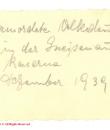 ermordete Volksdeu
in der Gneisenau
kaserne
September 1939